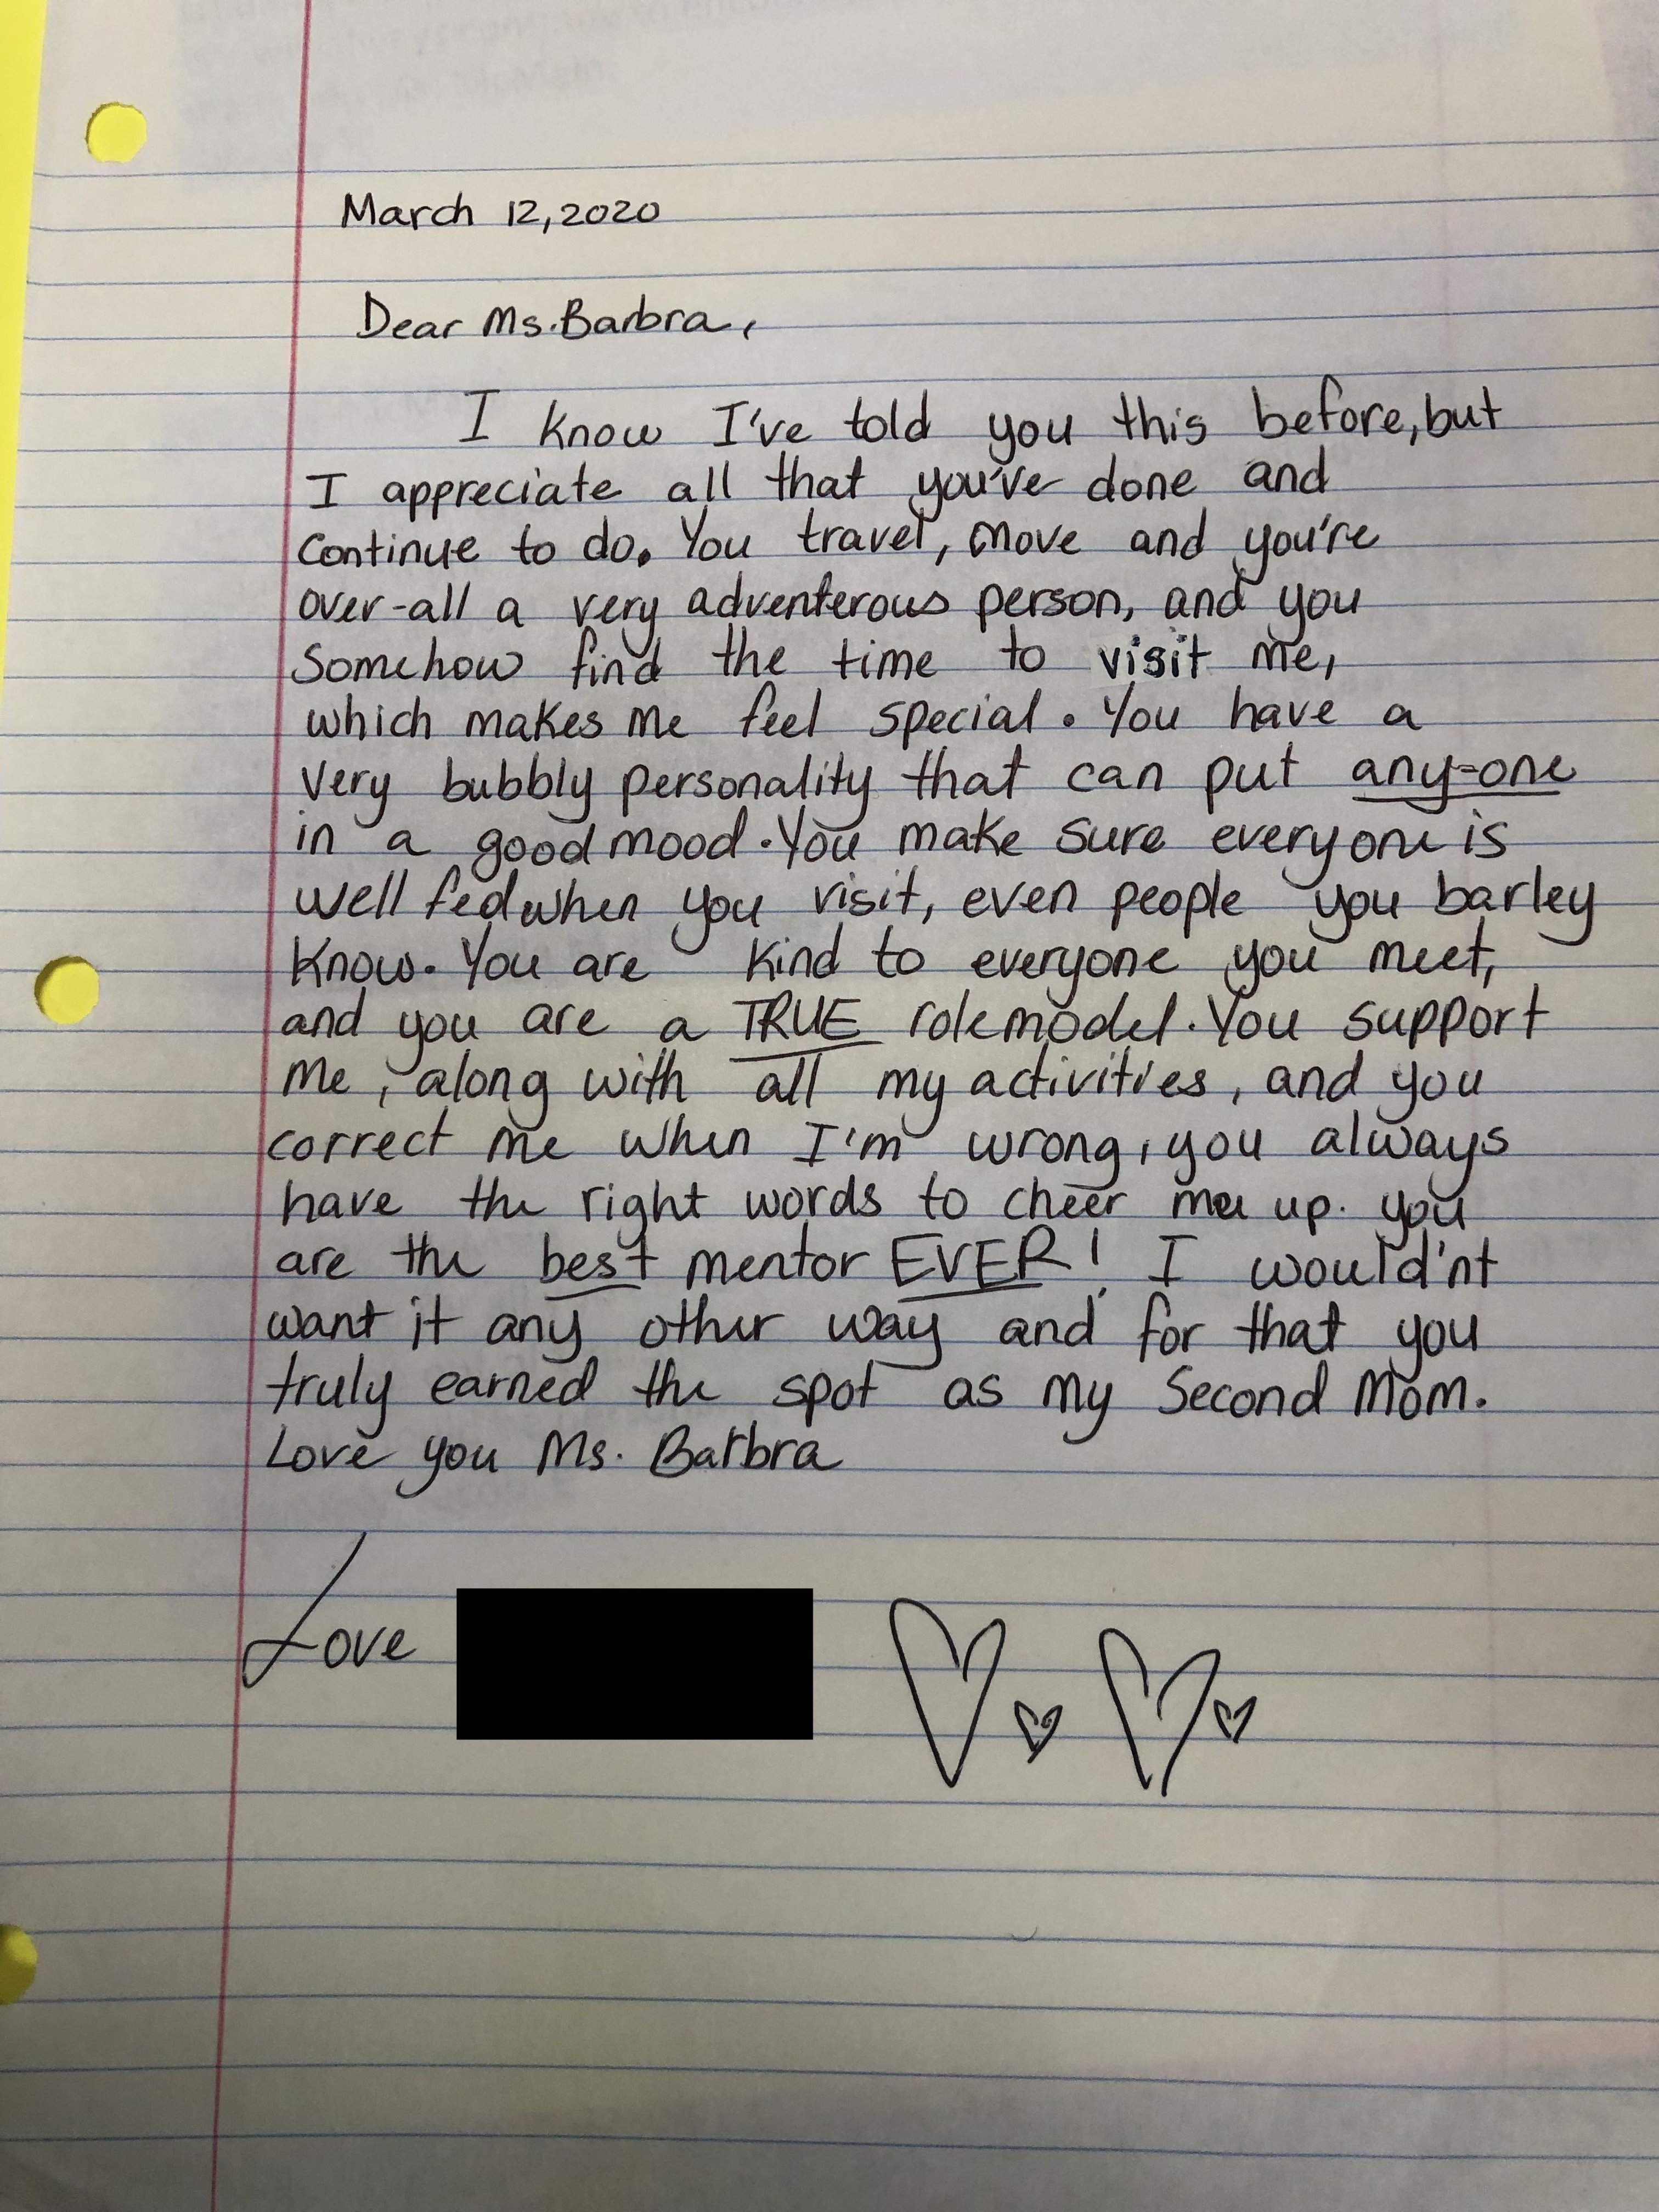 March 12, 2020
Dear Ms. Barbra,
I know I've told you this before, but
I appreciate all that you've done and
continue to do. You travel, move and you're
over-all a very adventerous person, and you
somehow find the time to visit me,
which makes me feel special. You have a
very bubbly personality that can put any-one
in a good mood. You make sure everyone is
well fed when you visit, even people you barley
know. You are kind to everyone you meet,
and you are a TRUE rolemodel. You support
me, along with all my activities, and you
correct me when I'm wrong, you always
have the right words to cheer me up. you
are the best mentor EVER! I would'nt
want it any other way and for that you
truly earned the spot as my Second Mom.
Love you Ms. Barbra
Love